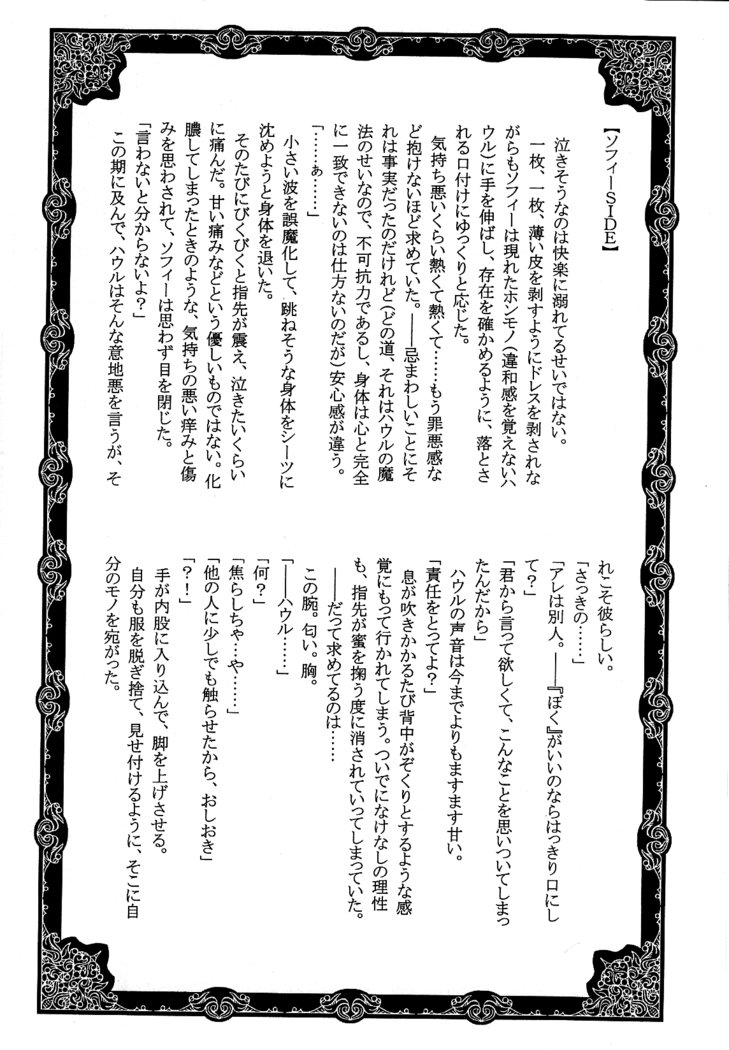 【ソフィーSIDE】
泣きそうなのは快楽に溺れてるせいではない。
一枚、一枚、薄い皮を剥すようにドレスを剥されな
がらもソフィーは現れたホンモノ(違和感を覚えないハ
ウル)に手を伸ばし、存在を確かめるように、落とさ
れる口付けにゆっくりと応じた。
気持ち悪いくらい熱くて熱くて……もう罪悪感な
ど抱けないほど求めていた。――忌まわしいことにそ
れは事実だったのだけれど(どの道、それはハウルの魔
法のせいなので、不可抗力であるし、身体は心と完全
に一致できないのは仕方ないのだが)安心感が違う。
「……ぁ……」
小さい波を誤魔化して、跳ねそうな身体をシーツに
沈めようと身体を退いた。
そのたびにびくびくと指先が震え、泣きたいくらい
に痛んだ。甘い痛みなどという優しいものではない。化
膿してしまったときのような、気持ちの悪い痒みと傷
みを思わされて、ソフィーは思わず目を閉じた。
「言わないと分からないよ？」
この期に及んで、ハウルはそんな意地悪を言うが、そ
れこそ彼らしい。
「さっきの……」
「アレは別人。――『ぼく』がいいのならはっきり口にし
て？」
「君から言って欲しくて、こんなことを思いついてしまっ
たんだから」
ハウルの声音は今までよりもますます甘い。
「責任をとってよ？」
息が吹きかかるたび背中がぞくりとするような感
覚にもって行かれてしまう。ついでになけなしの理性
も、指先が蜜を掬う度に消されていってしまっていた。
――だって求めてるのは……
この腕。匂い。胸。
「――ハウル……」
「何？」
「焦らしちゃ…や……」
「他の人に少しでも触らせたから、おしおき」
「？！」
手が内股に入り込んで、脚を上げさせる。
自分も服を脱ぎ捨て、見せ付けるように、そこに自
分のモノを宛がった。